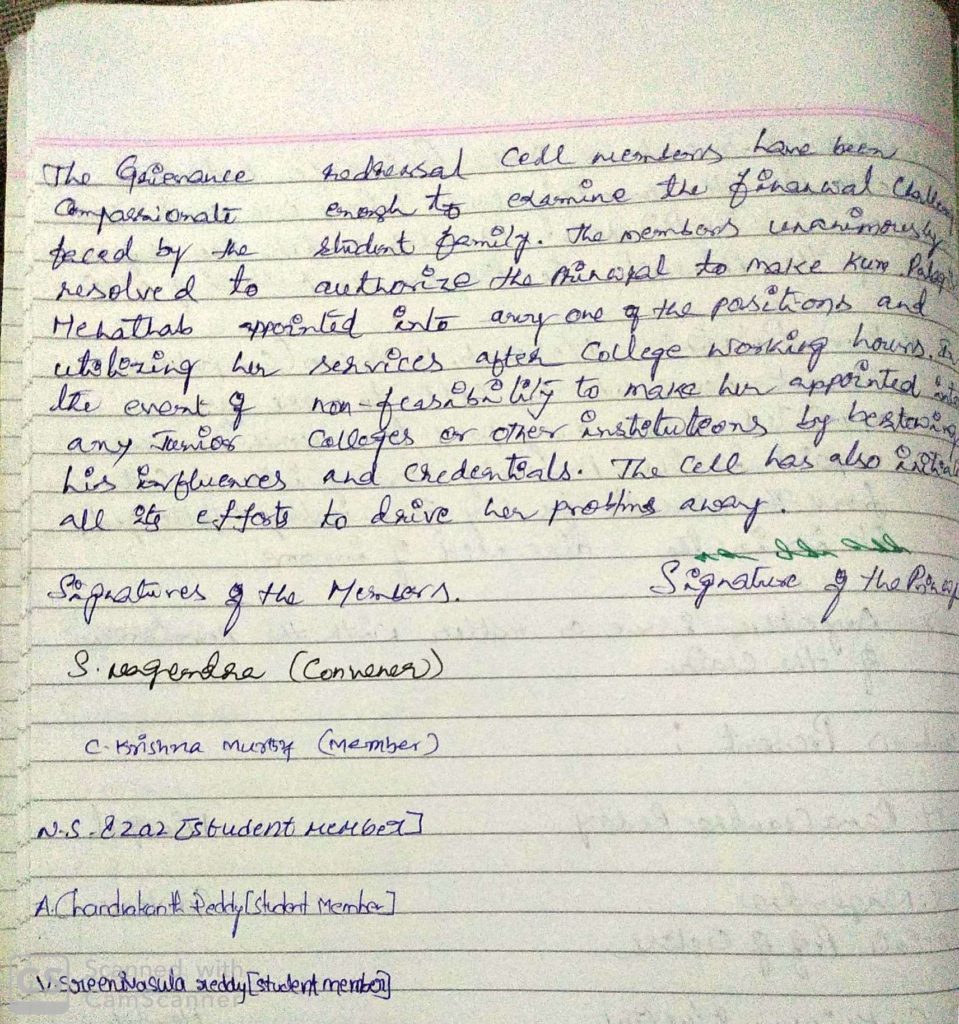 The Grievance redressal Cell members have been
Compassionate enough to examine the financial
faced by the student family. The members unanimously
resolved to authorize the Principal to make Kum
Mehathab appointed into any one of the positions and
utilizing her services after College working hours. In
the event of non-feasibility to make her appointed into
any Junior Colleges or other institutions by bestowing
his influences and credentials. The Cell has also
all its efforts to drive her problms away.
Signatures of the Members. Signature of the
S. Nagendra (Convener)
C. Krishna Murthy (Member)
N.S. Ezaz [Student Member]
A. Chandrakanth Reddy [Student Member]
V. Sreenivasula reddy [Student member]
CS Scanned with
CamScanner